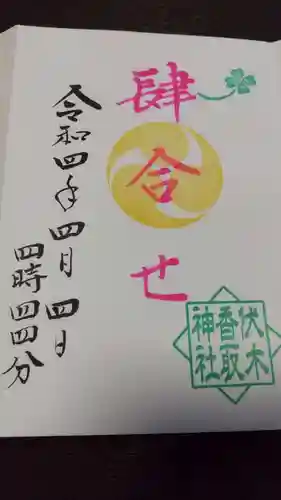 肆合せ
令和四年四月四日
四時四四分
伏木
香取
神社